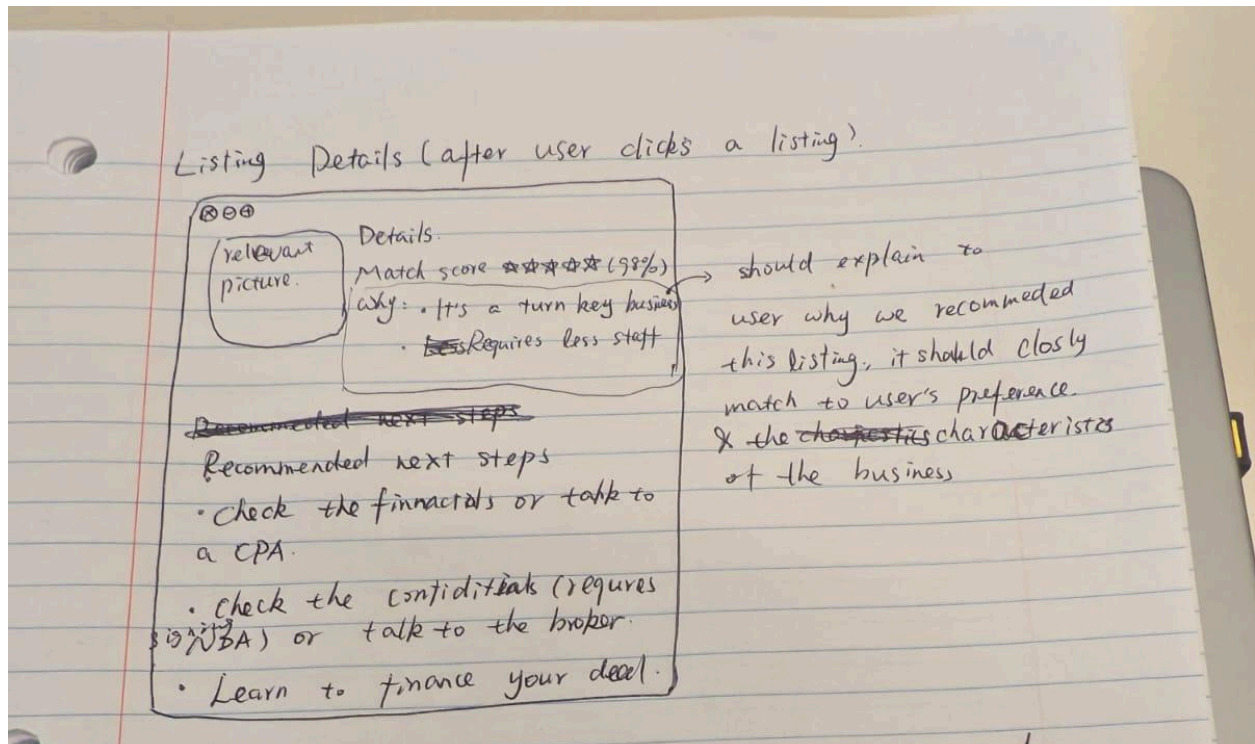 Listing Details (after user clicks a listing).
relevant
picture.
Details.
Match score ☆☆☆☆☆ (98%)
Why: • It's a turn key business
• Requires less staff
should explain to
user why we recommeded
this listing, it should closly
match to user's preference.
& the characteristics
of the business
Recommeded next steps
Recommended next steps
• Check the finnacials or talk to
a CPA.
• Check the confiditials (requres
signing NDA) or talk to the broker.
• Learn to finance your deal.